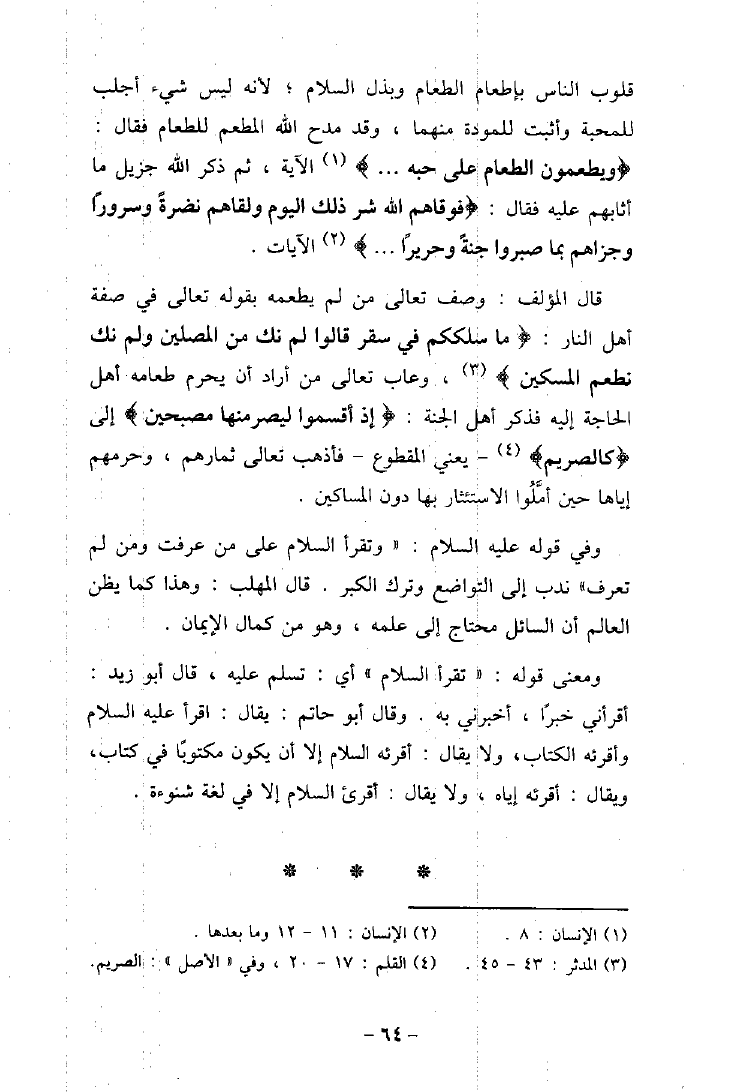 قلوب الناس بإطعام الطعام وبذل السلام ؛ لأنه ليس شيء أجلب
للمحبة وأثبت للمودة منهما ، وقد مدح الله المطعم للطعام فقال :
﴿ويطعمون الطعام على حبه ... ﴾ (١) الآية ، ثم ذكر الله جزيل ما
أثابهم عليه فقال : ﴿فوقاهم الله شر ذلك اليوم ولقاهم نضرةً وسرورًا
وجزاهم بما صبروا جنةً وحريرًا ... ﴾ (٢) الآيات .
قال المؤلف : وصف تعالى من لم يطعمه بقوله تعالى في صفة
أهل النار : ﴿ ما سلككم في سقر قالوا لم نك من المصلين ولم نك
نطعم المسكين ﴾ (٣) ، وعاب تعالى من أراد أن يحرم طعامه أهل
الحاجة إليه فذكر أهل الجنة : ﴿ إذ أقسموا ليصرمنها مصبحين ﴾ إلى
﴿كالصريم﴾ (٤) - يعني المقطوع - فأذهب تعالى ثمارهم ، وحرمهم
إياها حين أمَّلُوا الاستئثار بها دون المساكين .
وفي قوله عليه السلام : « وتقرأ السلام على من عرفت ومن لم
تعرف» ندب إلى التواضع وترك الكبر . قال المهلب : وهذا كما يظن
العالم أن السائل محتاج إلى علمه ، وهو من كمال الإيمان .
ومعنى قوله : « تقرأ السلام » أي : تسلم عليه ، قال أبو زيد :
أقرأني خبرًا ، أخبرني به . وقال أبو حاتم : يقال : اقرأ عليه السلام
وأقرئه الكتاب، ولا يقال : أقرئه السلام إلا أن يكون مكتوبًا في كتاب،
ويقال : أقرئه إياه ، ولا يقال : أقرئ السلام إلا في لغة شنوءة .
* * *
(١) الإنسان : ٨ . (٢) الإنسان : ١١ - ١٢ وما بعدها .
(٣) المدثر : ٤٣ - ٤٥ . (٤) القلم : ١٧ - ٢٠ ، وفي « الأصل » : الصريم.
- ٦٤ -